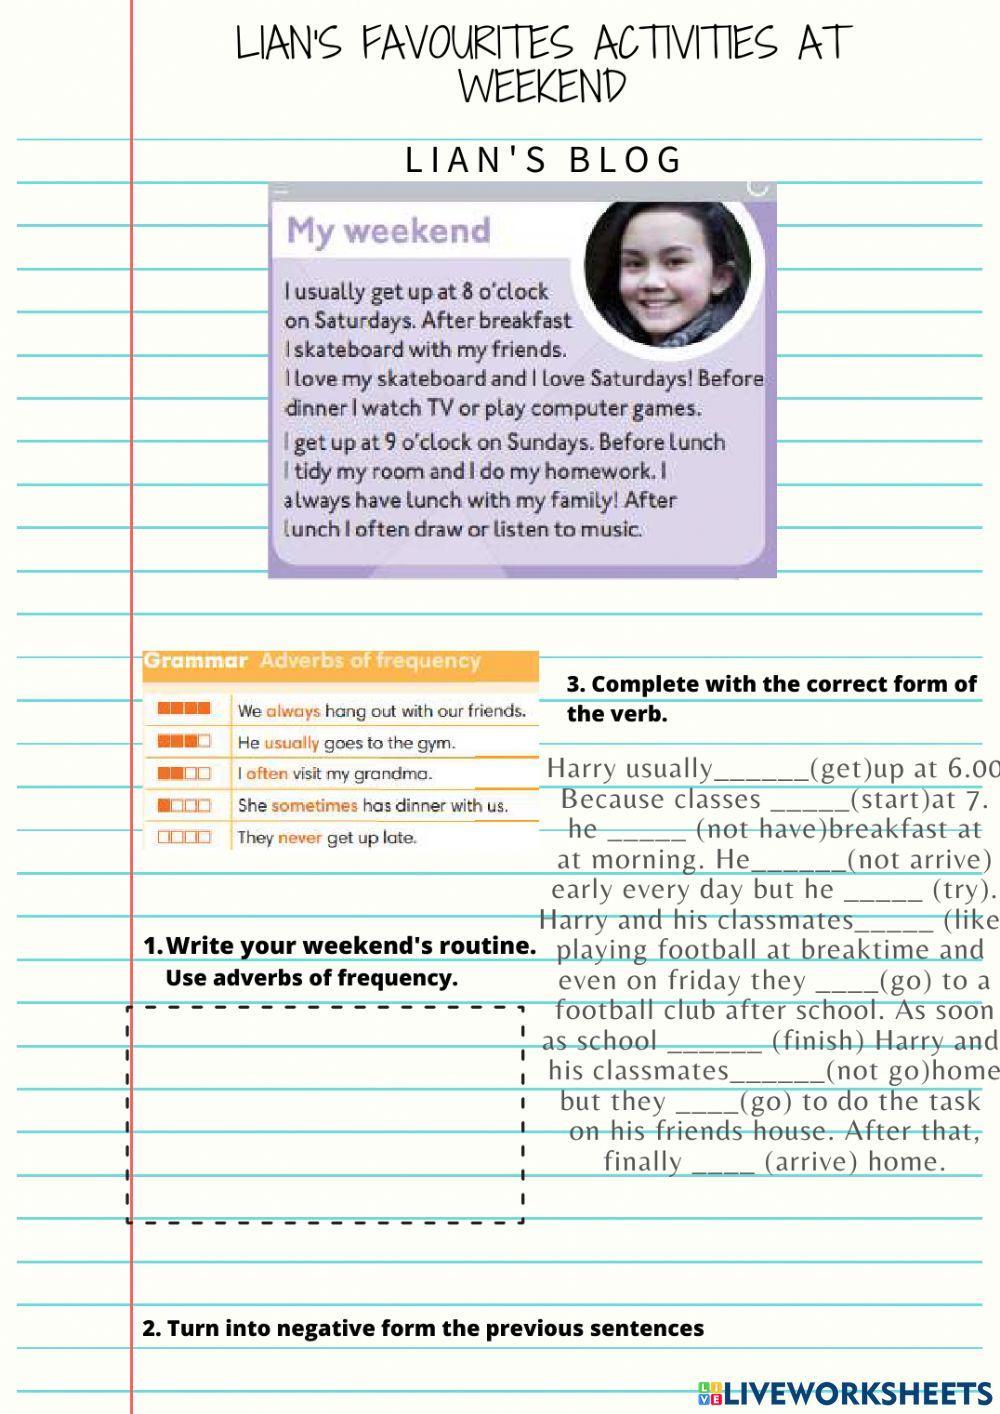 LIAN'S FAVOURITES ACTIVITIES AT
WEEKEND
LIAN'S BLOG
My weekend
I usually get up at 8 o'clock
on Saturdays. After breakfast
I skateboard with my friends.
I love my skateboard and I love Saturdays! Before
dinner I watch TV or play computer games.
I get up at 9 o'clock on Sundays. Before lunch
I tidy my room and I do my homework. I
always have lunch with my family! After
lunch I often draw or listen to music.
Grammar Adverbs of frequency
We always hang out with our friends.
He usually goes to the gym.
I often visit my grandma.
She sometimes has dinner with us.
They never get up late.
1. Write your weekend's routine.
Use adverbs of frequency.
2. Turn into negative form the previous sentences
3. Complete with the correct form of
the verb.
Harry usually______(get)up at 6.00
Because classes _____(start)at 7.
he _____ (not have)breakfast at
at morning. He______(not arrive)
early every day but he _____ (try).
Harry and his classmates_____ (like
playing football at breaktime and
even on friday they ____(go) to a
football club after school. As soon
as school ______ (finish) Harry and
his classmates______(not go)home
but they ____(go) to do the task
on his friends house. After that,
finally ____ (arrive) home.
LIVE LIVEWORKSHEETS